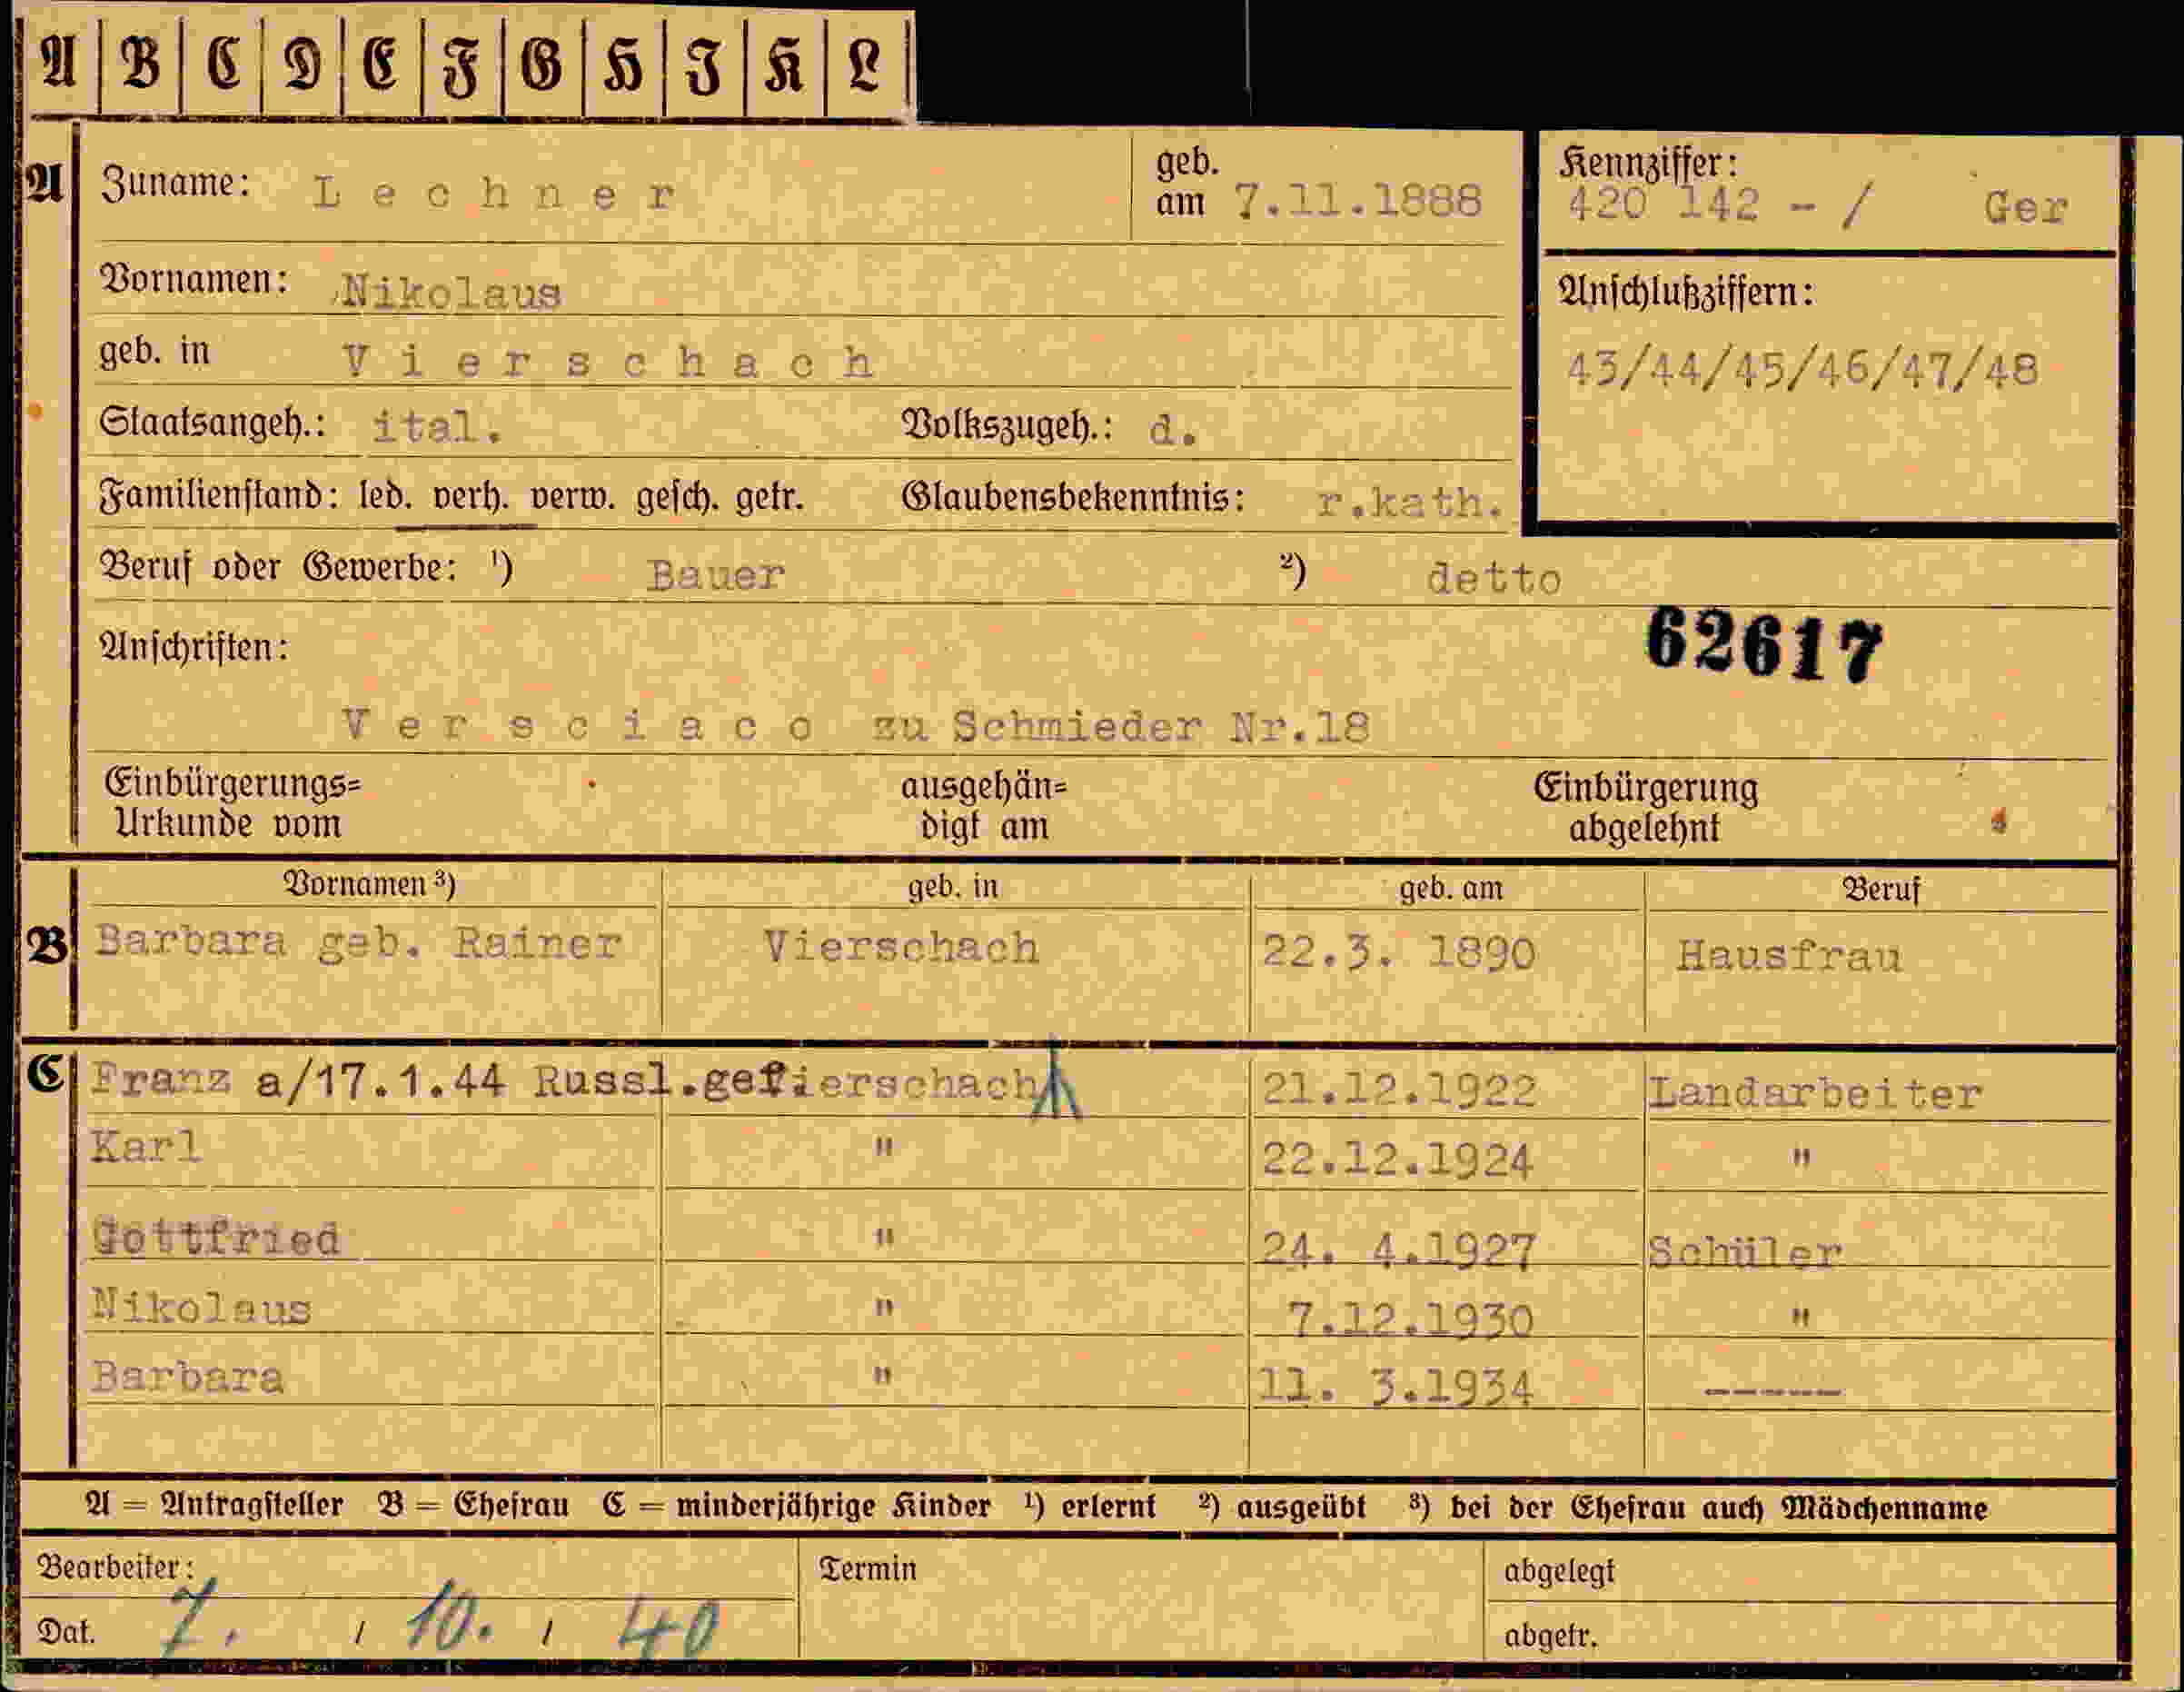 A B C D E F G H I K L
A Zuname: Lechner geb. am 7.11.1888
Kennziffer: 420 142 - / Ger
Vornamen: Nikolaus
Anschlußziffern:
geb. in Vierschach
43/44/45/46/47/48
Staatsangeh.: ital. Volkszugeh.: d.
Familienstand: led. verh. verw. gesch. getr. Glaubensbekenntnis: r.kath.
Beruf oder Gewerbe: ¹) Bauer ²) detto
Anschriften: 62617
Versciaco zu Schmieder Nr.18
Einbürgerungs= ausgehän= Einbürgerung
Urkunde vom digt am abgelehnt
Vornamen ³) geb. in geb. am Beruf
B Barbara geb. Rainer Vierschach 22.3. 1890 Hausfrau
C Franz a/17.1.44 Russl.gefierschach 21.12.1922 Landarbeiter
Karl " 22.12.1924 "
Gottfried " 24. 4.1927 Schüler
Nikolaus " 7.12.1930 "
Barbara " 11. 3.1934 -----
A = Antragsteller B = Ehefrau C = minderjährige Kinder ¹) erlernt ²) ausgeübt ³) bei der Ehefrau auch Mädchenname
Bearbeiter: Termin abgelegt
Dat. 7. / 10. / 40 abgetr.